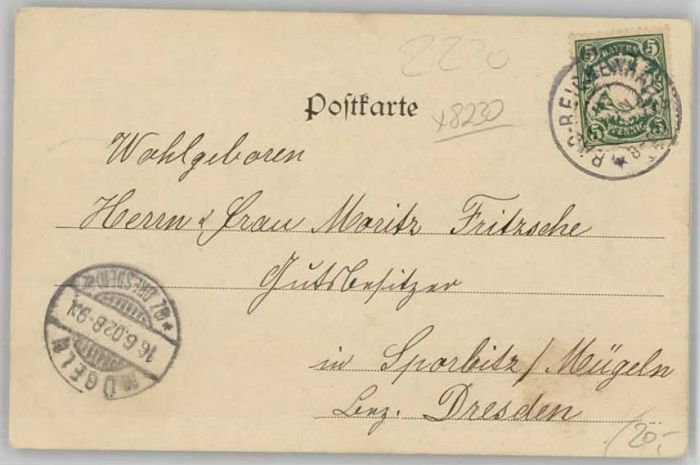 2230
Postkarte
x8230
BAYERN
5 5
5 5
PFENNIG
BAD-REICHENHALL
Wohlgeboren
Herrn & Frau Moritz Fritzsche
Gutsbesitzer
in Sporbitz/Mügeln
Bez. Dresden
MÜGELN
16.6.02.8-9N.
(BZ. DRESDEN)
20,-